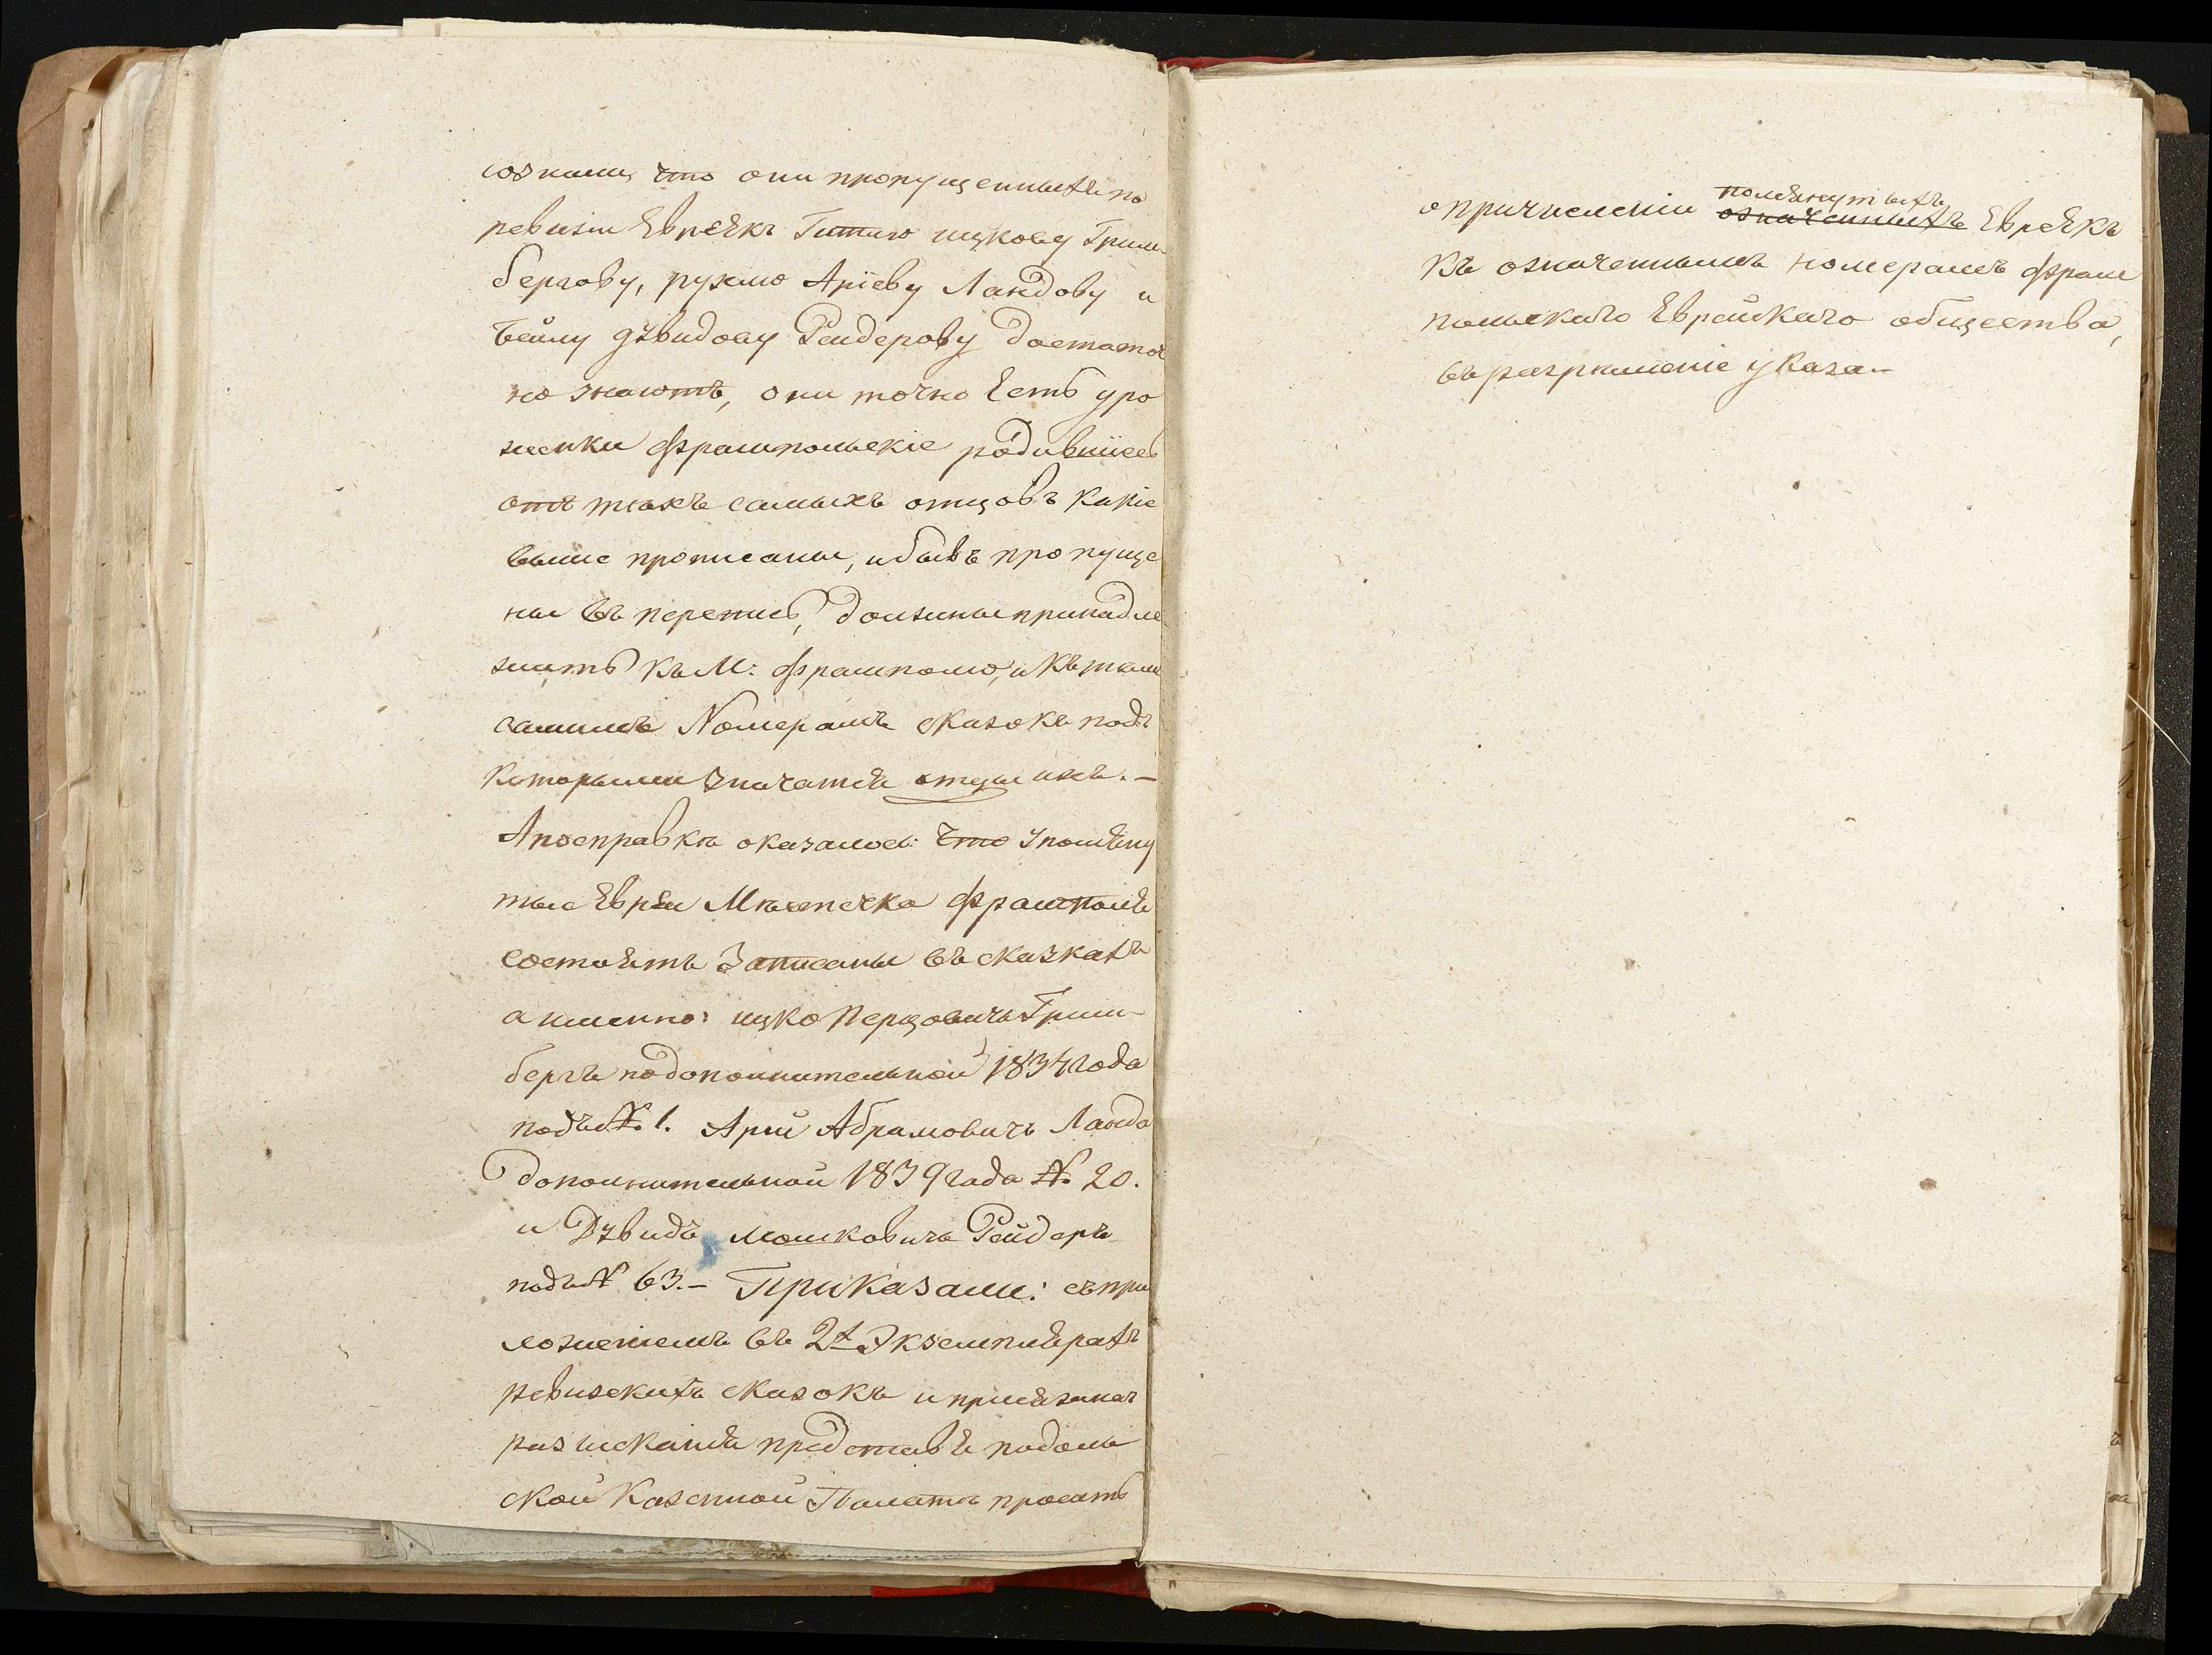 сознали, что они пропущенныхъ по
ревизіи Евреякъ Гитлю ицкову Грин
бергову, рухлю Аріеву Ландову и
Бейлу дувидову Рейдерову достаточ
но знаютъ, они точно Есть уро
женки Фрампольскіе родившіесь
отъ техъ самыхъ отцовъ какіе
выше прописаны, и бывъ пропуще
ны въ перепись, должны принадле
жить къ М: Фрамполю, и къ темъ
самимъ Номерамъ сказокъ подъ
которыми значатся отцы ихъ. —
А по справкѣ оказалось: что упомяну
тые Евреи Мѣстечка Фрамполя
состоятъ Записаны въ сказкахъ
а именно: ицко Перцовичъ Грин-
бергъ по дополнительной 1834 года
подъ №. 1. Арій Абрамовичъ Ланда
дополнительной 1839 года №. 20.
и Дувидъ Мошковичъ Рейдеръ
подъ № 63. — Приказали: съ при
ложениемъ въ 2х Экземплярахъ
ревизскихъ сказокъ и присяжнаг
разисканія представя подоль
ской Казенной Палатѣ просить
помянутыхъ
о причисленіи означенныхъ Евреякъ
къ означеннымъ номерамъ Фрам
польскаго Еврейскаго общества,
въ разрешеніе указа. —